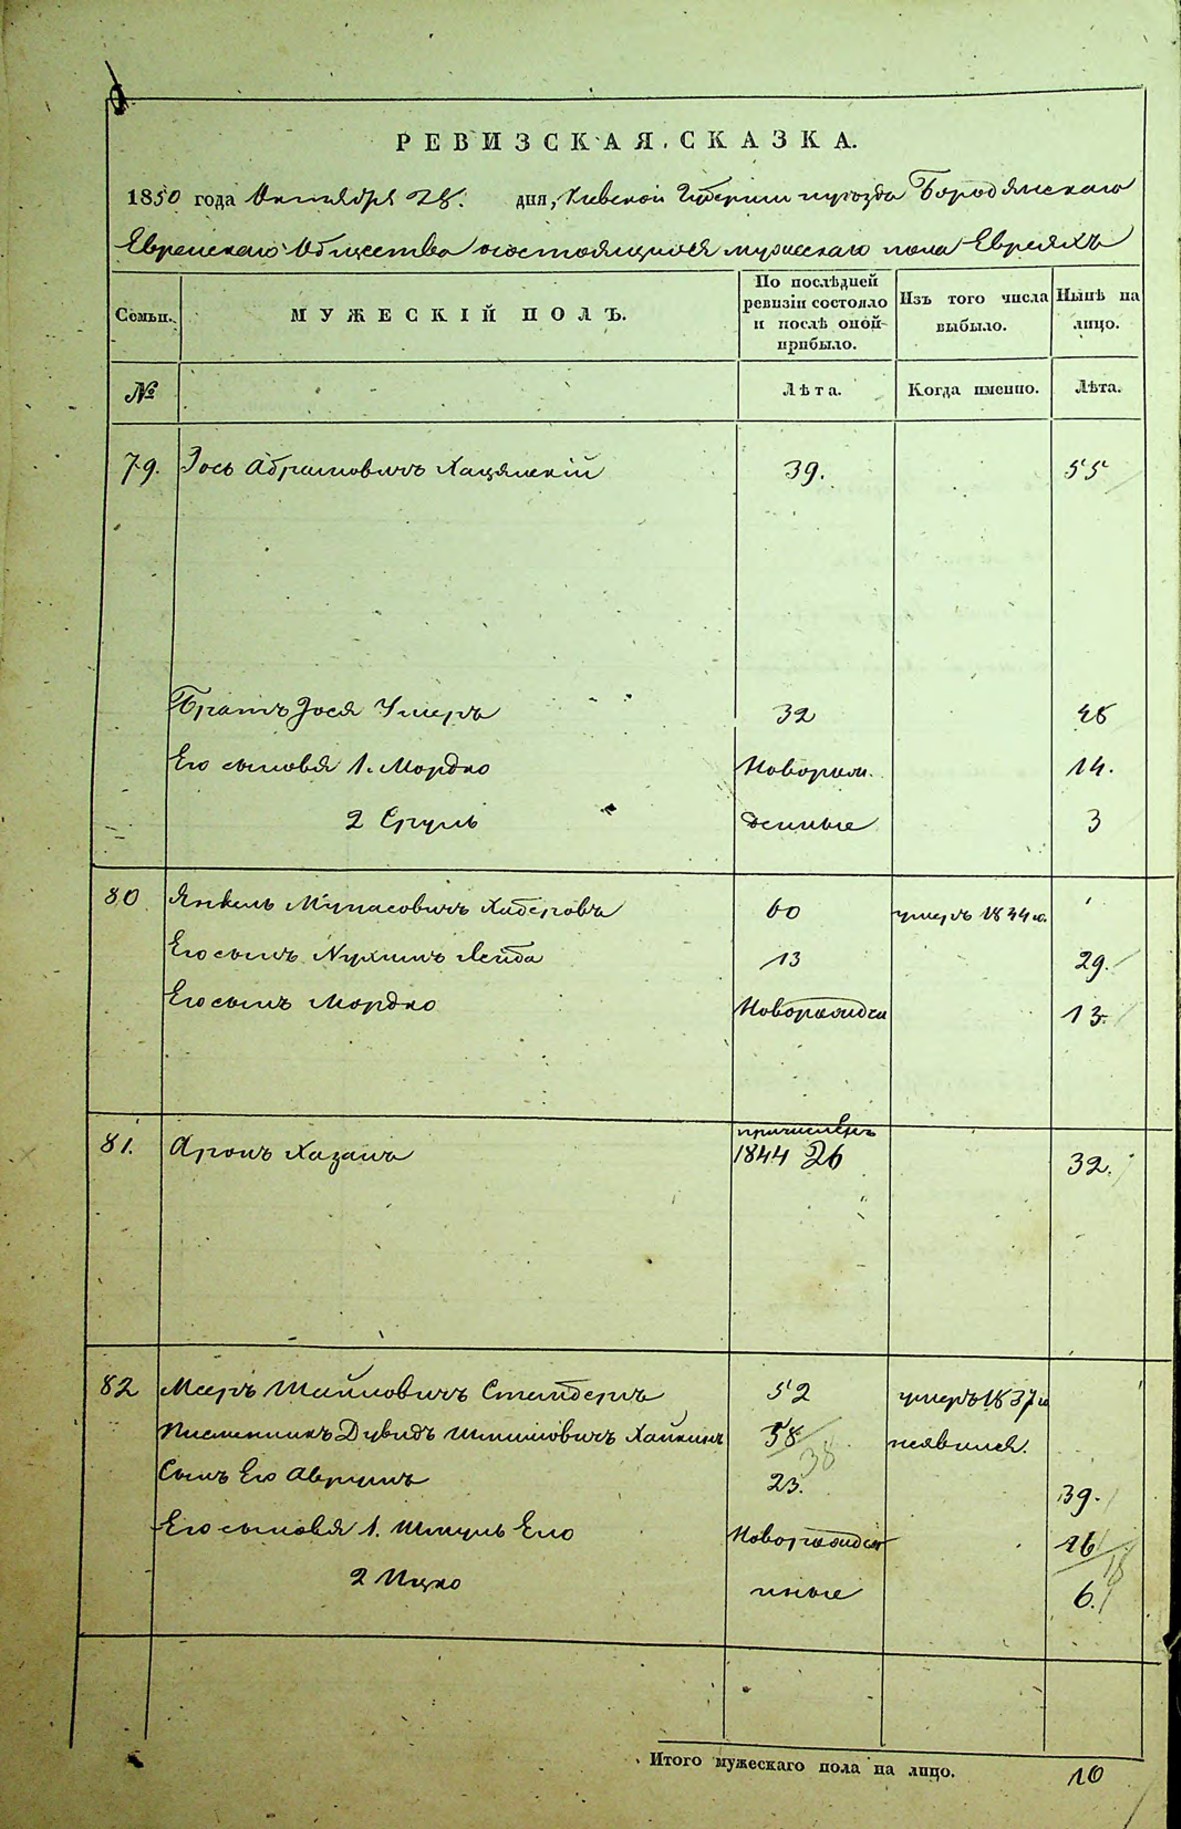 РЕВИЗСКАЯ СКАЗКА.
1850 года Октября 28. дня, Киевской Губернии и уезда Бородянскаго
Еврейскаго Общества о состоящихся мужескаго пола Евреяхъ
Семьи.
МУЖЕСКІЙ ПОЛЪ.
По послѣдней ревизіи состояло и послѣ оной прибыло.
Изъ того числа выбыло.
Нынѣ на лицо.
№
Лѣта.
Когда именно.
Лѣта.
79. Іось Абрамовичъ 39. 55
Братъ Іося Умеръ 32 48
Его сыновья 1. Мордко Новорож. 14.
2 Сруль денные 3
80 Янкель 60 умеръ 1844 г.
Его сынъ Нухимъ Лейба 13 29.
Его сынъ Мордко Новорожден 13.
81. Аронъ Хазанъ причисленъ 1844 26 32.
82 Мееръ 52 умеръ 1837 г
Дувидъ Шмулиовичъ 58 38 неявился.
Сынъ Его Аврумъ 23. 39.
Его сыновья 1. Шмуль Ело Новорожден 16 18
2 Ицко нные 6.
Итого мужескаго пола на лицо. 10